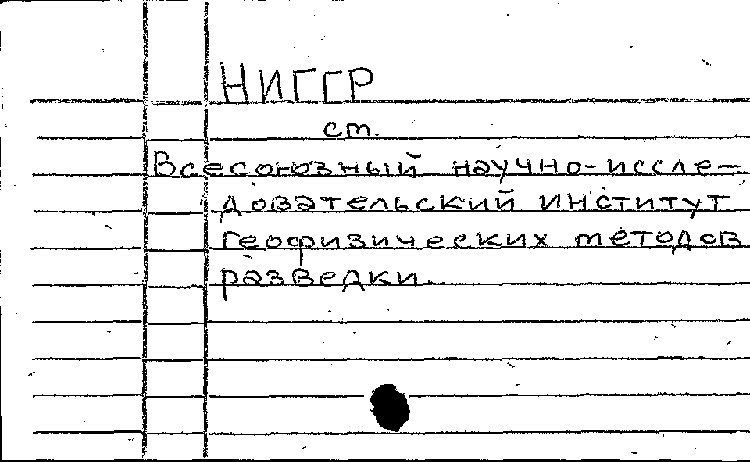 НИГГР
ст.
Всесоюзный научно-иссле-
довательский институт
геофизических методов
разведки.